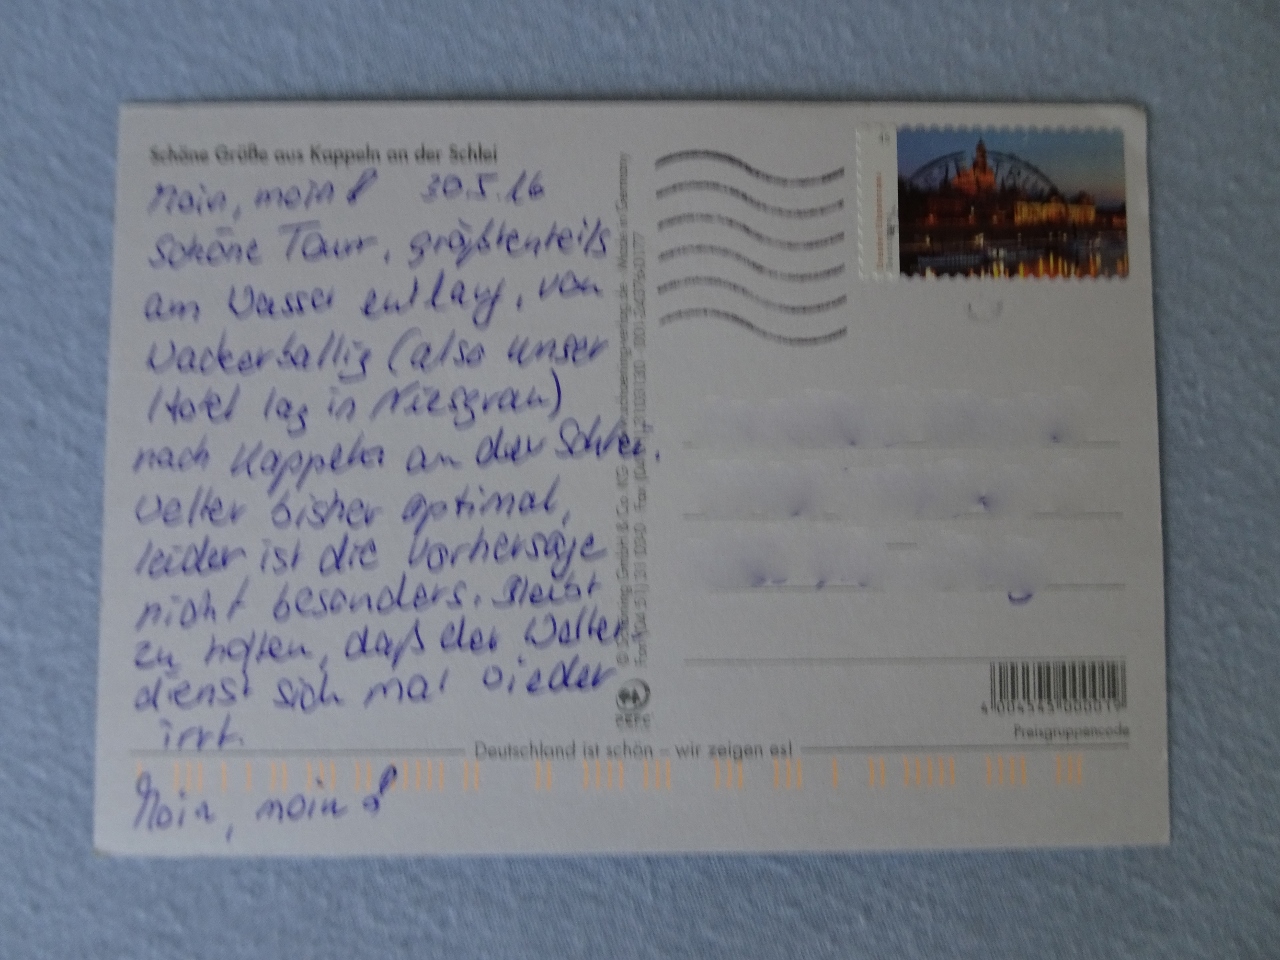 Schöne Grüße aus Kappeln an der Schlei
Moin, moin! 30.5.16
Schöne Tour, größtenteils
am Wasser entlang, von
Wackerballig (also unser
Hotel lag in Niesgrau)
nach Kappeln an der Schlei.
Wetter bisher optimal,
leider ist die Vorhersage
nicht besonders. Bleibt
zu hoffen, daß der Wetter
dienst sich mal wieder
irrt.
Moin, moin!
Deutschland ist schön – wir zeigen es!
Preisgruppencode